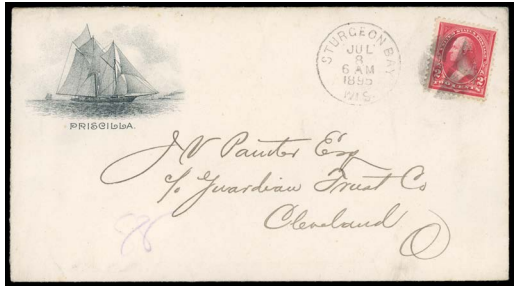 PRISCILLA.
STURGEON BAY
JUL
8
6 AM
1895
WIS.
2 2
J V Painter Esq
c/o Guardian Trust Co
Cleveland
O